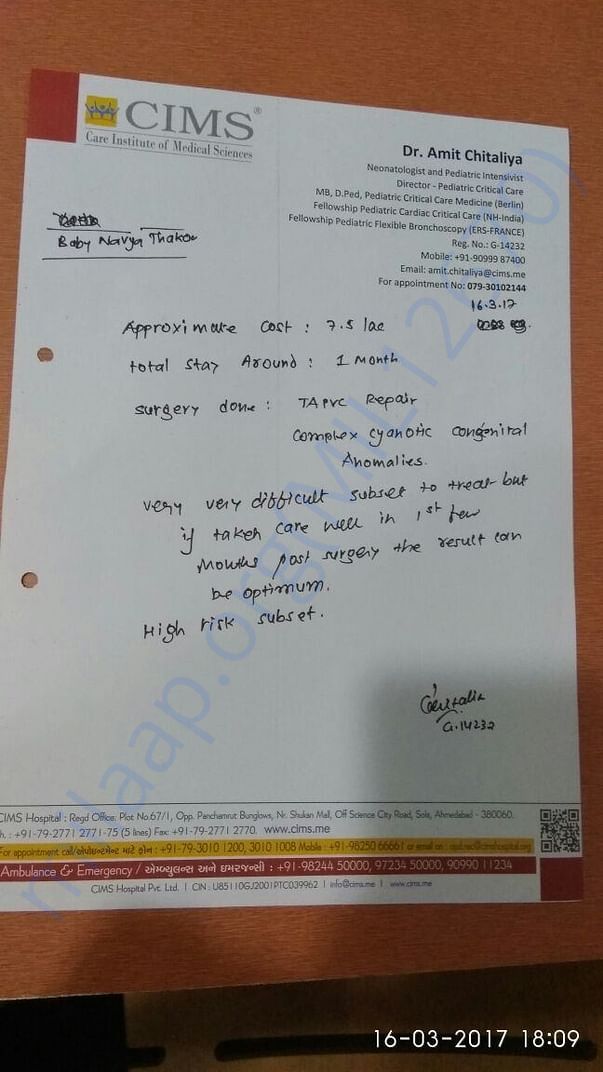 CIMS®
Care Institute of Medical Sciences
Dr. Amit Chitaliya
Neonatologist and Pediatric Intensivist
Director - Pediatric Critical Care
MB, D.Ped, Pediatric Critical Care Medicine (Berlin)
Fellowship Pediatric Cardiac Critical Care (NH-India)
Fellowship Pediatric Flexible Bronchoscopy (ERS-FRANCE)
Reg. No.: G-14232
Mobile: +91-90999 87400
Email: amit.chitaliya@cims.me
For appointment No: 079-30102144
Baby Navya Thakor
16.3.17
Approximate cost : 7.5 lac
total stay Around : 1 Month
surgery done : TAPVC Repair
complex cyanotic congenital
Anomalies.
very very difficult subset to treat but
if taken care well in 1st few
Months post surgery the result can
be optimum.
High risk subset.
G.14232
CIMS Hospital : Regd Office. Plot No.67/1, Opp. Panchamrut Bunglows, Nr. Shukan Mall, Off Science City Road, Sola, Ahmedabad - 380060.
Ph. : +91-79-2771 2771-75 (5 lines) Fax: +91-79-2771 2770. www.cims.me
For appointment call/એપોઇન્ટમેન્ટ માટે ફોન : +91-79-3010 1200, 3010 1008 Mobile : +91-98250 66661 or email on : opd.rec@cimshospital.org
Ambulance & Emergency / એમ્બ્યુલન્સ અને ઇમરજન્સી : +91-98244 50000, 97234 50000, 90990 11234
CIMS Hospital Pvt. Ltd. | CIN : U85110GJ2001PTC039962 | info@cims.me | www.cims.me
16-03-2017 18:09